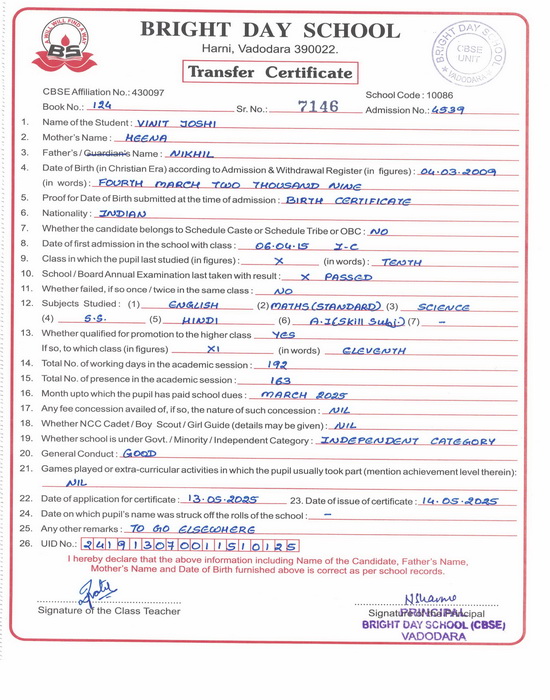 A WILL WILL FIND A WAY
BS
BRIGHT DAY SCHOOL
Harni, Vadodara 390022.
Transfer Certificate
BRIGHT DAY SCHOOL
CBSE
UNIT
VADODARA
CBSE Affiliation No.: 430097
School Code : 10086
Book No.: 124 Sr. No.: 7146 Admission No.: 4539
1. Name of the Student : VINIT JOSHI
2. Mother's Name : MEENA
3. Father's / Guardian's Name : NIKHIL
4. Date of Birth (in Christian Era) according to Admission & Withdrawal Register (in figures) : 04.03.2009
(in words) : FOURTH MARCH TWO THOUSAND NINE
5. Proof for Date of Birth submitted at the time of admission : BIRTH CERTIFICATE
6. Nationality : INDIAN
7. Whether the candidate belongs to Schedule Caste or Schedule Tribe or OBC : NO
8. Date of first admission in the school with class : 06.04.15 I-C
9. Class in which the pupil last studied (in figures) : X (in words) : TENTH
10. School / Board Annual Examination last taken with result : X PASSED
11. Whether failed, if so once / twice in the same class : NO
12. Subjects Studied : (1) ENGLISH (2) MATHS (STANDARD) (3) SCIENCE
(4) S.S. (5) HINDI (6) A.I (Skill Subj.) (7) –
13. Whether qualified for promotion to the higher class YES
If so, to which class (in figures) XI (in words) ELEVENTH
14. Total No. of working days in the academic session : 192
15. Total No. of presence in the academic session : 163
16. Month upto which the pupil has paid school dues : MARCH 2025
17. Any fee concession availed of, if so, the nature of such concession : NIL
18. Whether NCC Cadet / Boy Scout / Girl Guide (details may be given) : NIL
19. Whether school is under Govt. / Minority / Independent Category : INDEPENDENT CATEGORY
20. General Conduct : GOOD
21. Games played or extra-curricular activities in which the pupil usually took part (mention achievement level therein):
NIL
22. Date of application for certificate : 13.05.2025 23. Date of issue of certificate : 14.05.2025
24. Date on which pupil's name was struck off the rolls of the school : –
25. Any other remarks : TO GO ELSEWHERE
26. UID No.: 241913070011510125
I hereby declare that the above information including Name of the Candidate, Father's Name,
Mother's Name and Date of Birth furnished above is correct as per school records.
Signature of the Class Teacher
Signature of the Principal
PRINCIPAL
BRIGHT DAY SCHOOL (CBSE)
VADODARA